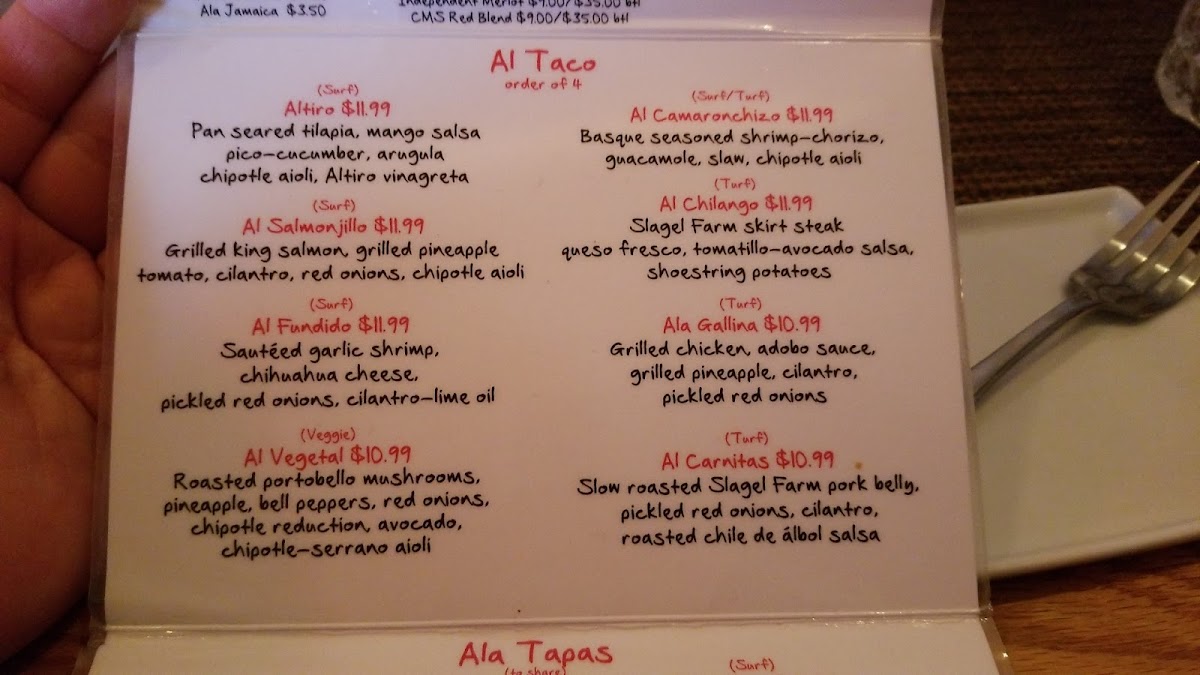 Ala Jamaica $3.50
Independent Merlot $9.00/$35.00 btl
CMS Red Blend $9.00/$35.00 btl
Al Taco
order of 4
(Surf)
Altiro $11.99
Pan seared tilapia, mango salsa
pico-cucumber, arugula
chipotle aioli, Altiro vinagreta
(Surf)
Al Salmonjillo $11.99
Grilled king salmon, grilled pineapple
tomato, cilantro, red onions, chipotle aioli
(Surf)
Al Fundido $11.99
Sautéed garlic shrimp,
chihuahua cheese,
pickled red onions, cilantro-lime oil
(Veggie)
Al Vegetal $10.99
Roasted portobello mushrooms,
pineapple, bell peppers, red onions,
chipotle reduction, avocado,
chipotle-serrano aioli
(Surf/Turf)
Al Camaronchizo $11.99
Basque seasoned shrimp-chorizo,
guacamole, slaw, chipotle aioli
(Turf)
Al Chilango $11.99
Slagel Farm skirt steak
queso fresco, tomatillo-avocado salsa,
shoestring potatoes
(Turf)
Ala Gallina $10.99
Grilled chicken, adobo sauce,
grilled pineapple, cilantro,
pickled red onions
(Turf)
Al Carnitas $10.99
Slow roasted Slagel Farm pork belly,
pickled red onions, cilantro,
roasted chile de álbol salsa
Ala Tapas
(to share)
(Surf)